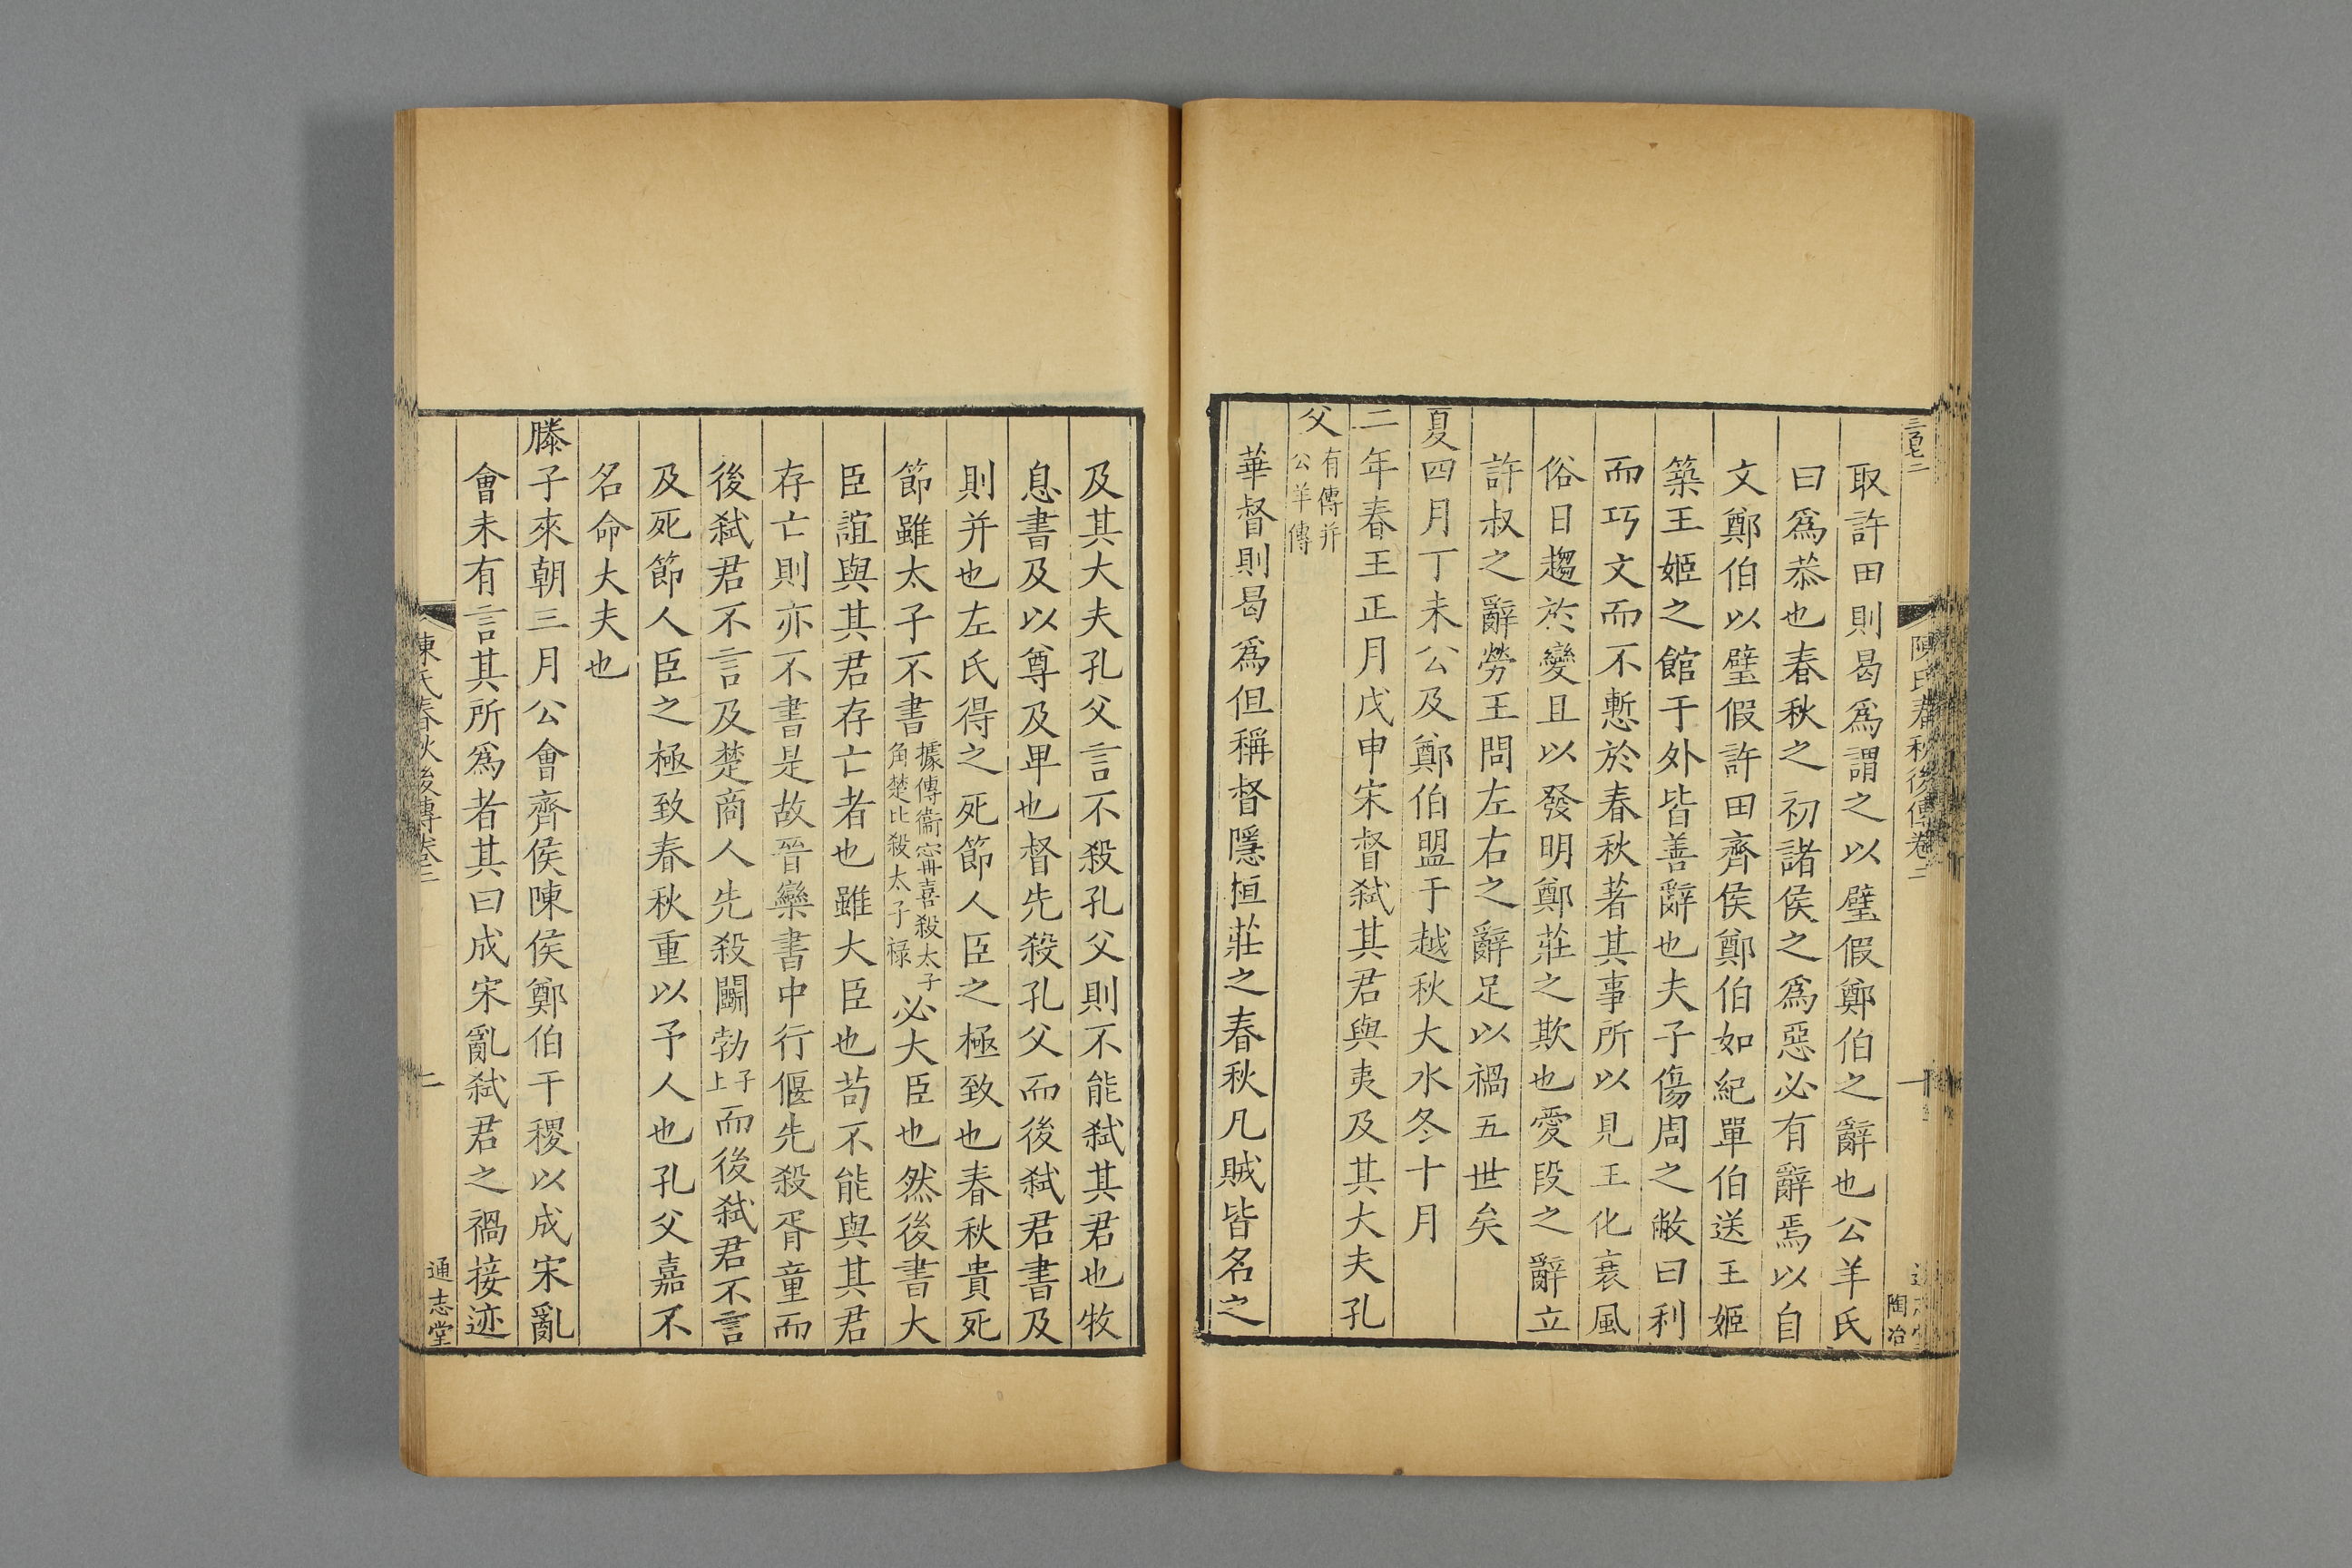 取許田則曷爲謂之以璧假鄭伯之辭也公羊氏
曰爲恭也春秋之初諸侯之爲惡必有辭焉以自
文鄭伯以璧假許田齊侯鄭伯如紀單伯送王姬
築王姬之館于外皆善辭也夫子傷周之敝曰利
而巧文而不慙於春秋著其事所以見王化衰風
俗日趨於變且以發明鄭莊之欺也愛段之辭立
許叔之辭勞王問左右之辭足以禍五世矣
夏四月丁未公及鄭伯盟于越秋大水冬十月
二年春王正月戊申宋督弒其君與夷及其大夫孔
父有傳并公羊傳
華督則曷爲但稱督隱桓莊之春秋凡賊皆名之
及其大夫孔父言不殺孔父則不能弒其君也牧
息書及以尊及卑也督先殺孔父而後弒君書及
則并也左氏得之死節人臣之極致也春秋貴死
節雖太子不書據傳衞甯喜殺太子角楚比殺太子祿必大臣也然後書大
臣誼與其君存亡者也雖大臣也苟不能與其君
存亡則亦不書是故晉欒書中行偃先殺胥童而
後弒君不言及楚商人先殺鬭勃子上而後弒君不言
及死節人臣之極致春秋重以予人也孔父嘉不
名命大夫也
滕子來朝三月公會齊侯陳侯鄭伯于稷以成宋亂
會未有言其所爲者其曰成宋亂弒君之禍接迹
陳氏春秋後傳卷二
二
通志堂
陳氏春秋後傳卷二
一
陶冶